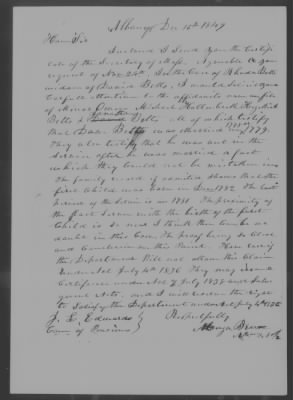 Albany Dec 15th 1849
Dear Sir
Enclosed I send you the Certifi
cate of the Secretary of Mass. Agreeable to your
request of Nov 24th In the Case of Rhoda Betts
widow of David Betts, I would also invite your
careful attention to the affidavits now on file
of Hallenbeck
& Betts all of which testify
that David Betts was married in 1779
They also testify that he was out in the
Service after he was married a fact
which they could not be mistaken in
The family record if admitted shows that the
first Child was born in Dec 1782 The last
Service of the Claim is in 1781 The proximity of
the last Service with the birth of the first
Child is so near I think there can be no
doubt in this Case The proof being so Clear
and Conclusive on this Point. Then even if
the Department Will not allow this Claim
under Act July 4th 1836 They may issue a
Certificate under Act of July 1838 and subse
quent Acts, and I will reserve the right
to satisfy the Department under Act July 4th 1836
J. L. Edwards
Com of Pensions
Respectfully